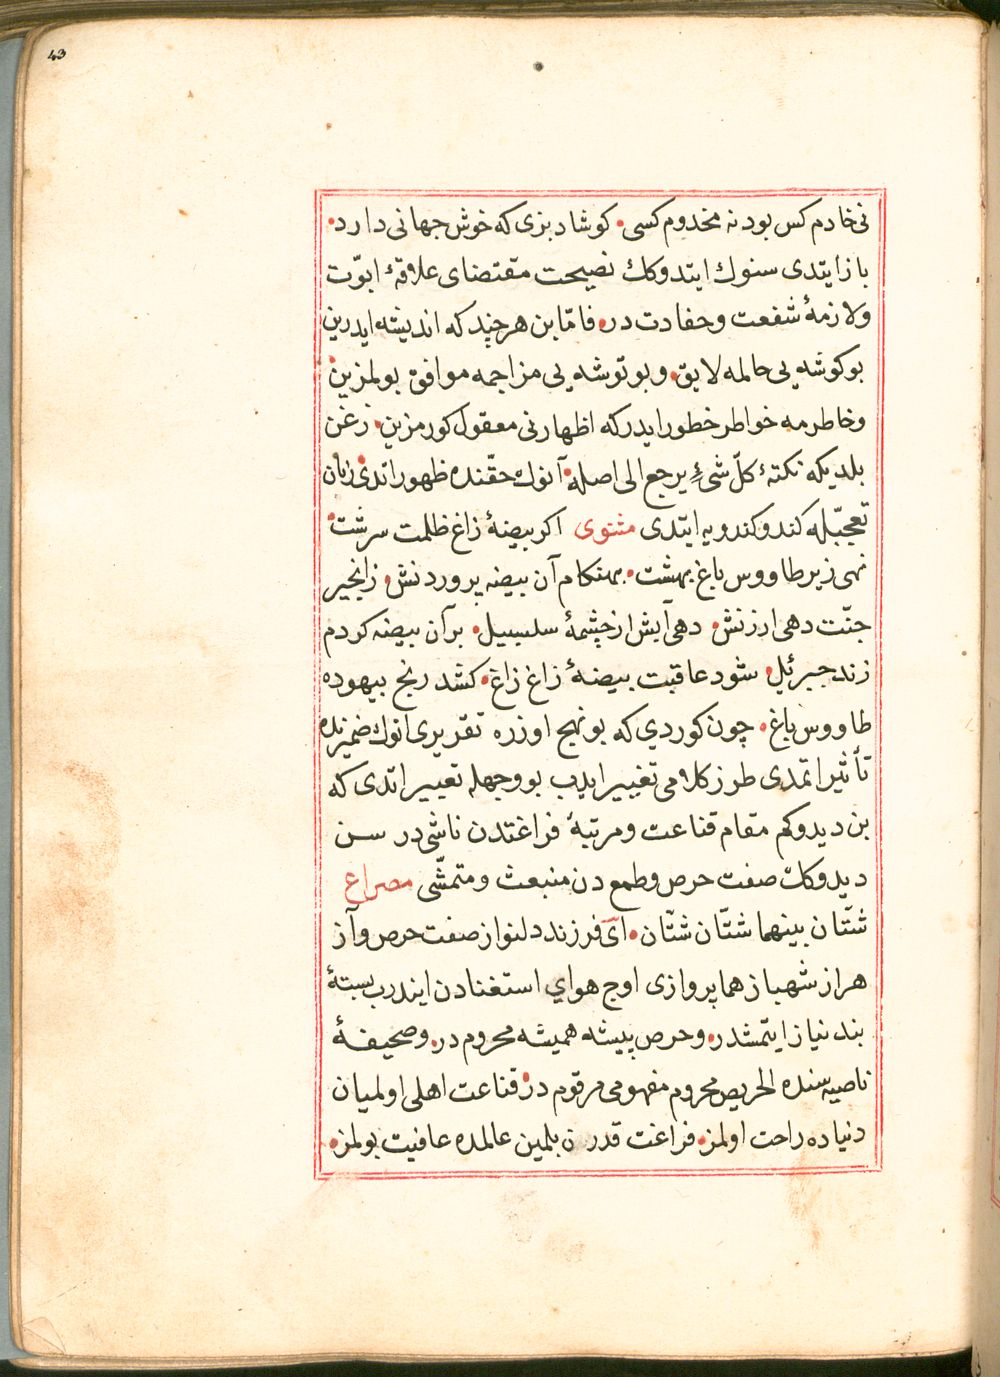 43
نی خادم کس بود نه مخدوم کسی. کو شاد بزی که خوش جهانی دارد.
باز ایتدی سنوك ایتدوکك نصیحت مقتضای علاقهٔ ابوّت
ولازمهٔ شفعت وحفادت در. فامّا بن هر چند که اندیشه ایدرین
بو کوشه یی حالمه لایق. وبو توشه یی مزاجمه موافق بولمزین
وخاطرمه خواطر خطور ایدر که اظهارنی معقول کورمزین. زغن
بلدیکه نکتهٔ کلّ شیٔ یرجع الی اصله. آنوك حقّنده ظهور اتدی زبان
تعجبّله کندو کندویه ایتدی مثنوی اکر بیضهٔ زاغ ظلمت سرشت.
نهی زیر طاووس باغ بهشت. بهنکام آن بیضه پروردنش. زانجیر
جنّت دهی ارزنش. دهی آبش از چشمهٔ سلسبیل. بر آن بیضه کر دم
زند جبرئیل. شود عاقبت بیضهٔ زاغ زاغ. کشد رنج بیهوده
طاووس باغ. چون کوردی که بو نهج اوزره تقریری انوك ضمیرنده
تأثیر اتمدی طرز کلامی تغییر ایدب بو وجهله تعبیر اتدی که
بن دیدوکم مقام قناعت ومرتبهٔ فراغتدن ناشی در سن
دیدوکك صفت حرص وطمع دن منبعث ومتمشّی مصراع
شتّان بینهما شتّان شتّان. ای فرزند دلنواز صفت حرص وآز
هزار شهباز هما پروازی اوج هوای استغنادن ایندرب بستهٔ
بند نیاز ایتمشدر. وحرص پیشه همیشه محروم در. وصحیفهٔ
ناصیه سنده الحریص محروم مفهومی مرقوم در. قناعت اهلی اولمیان
دنیاده راحت اولمز. فراغت قدرن بلمین عالمده عافیت بولمز.